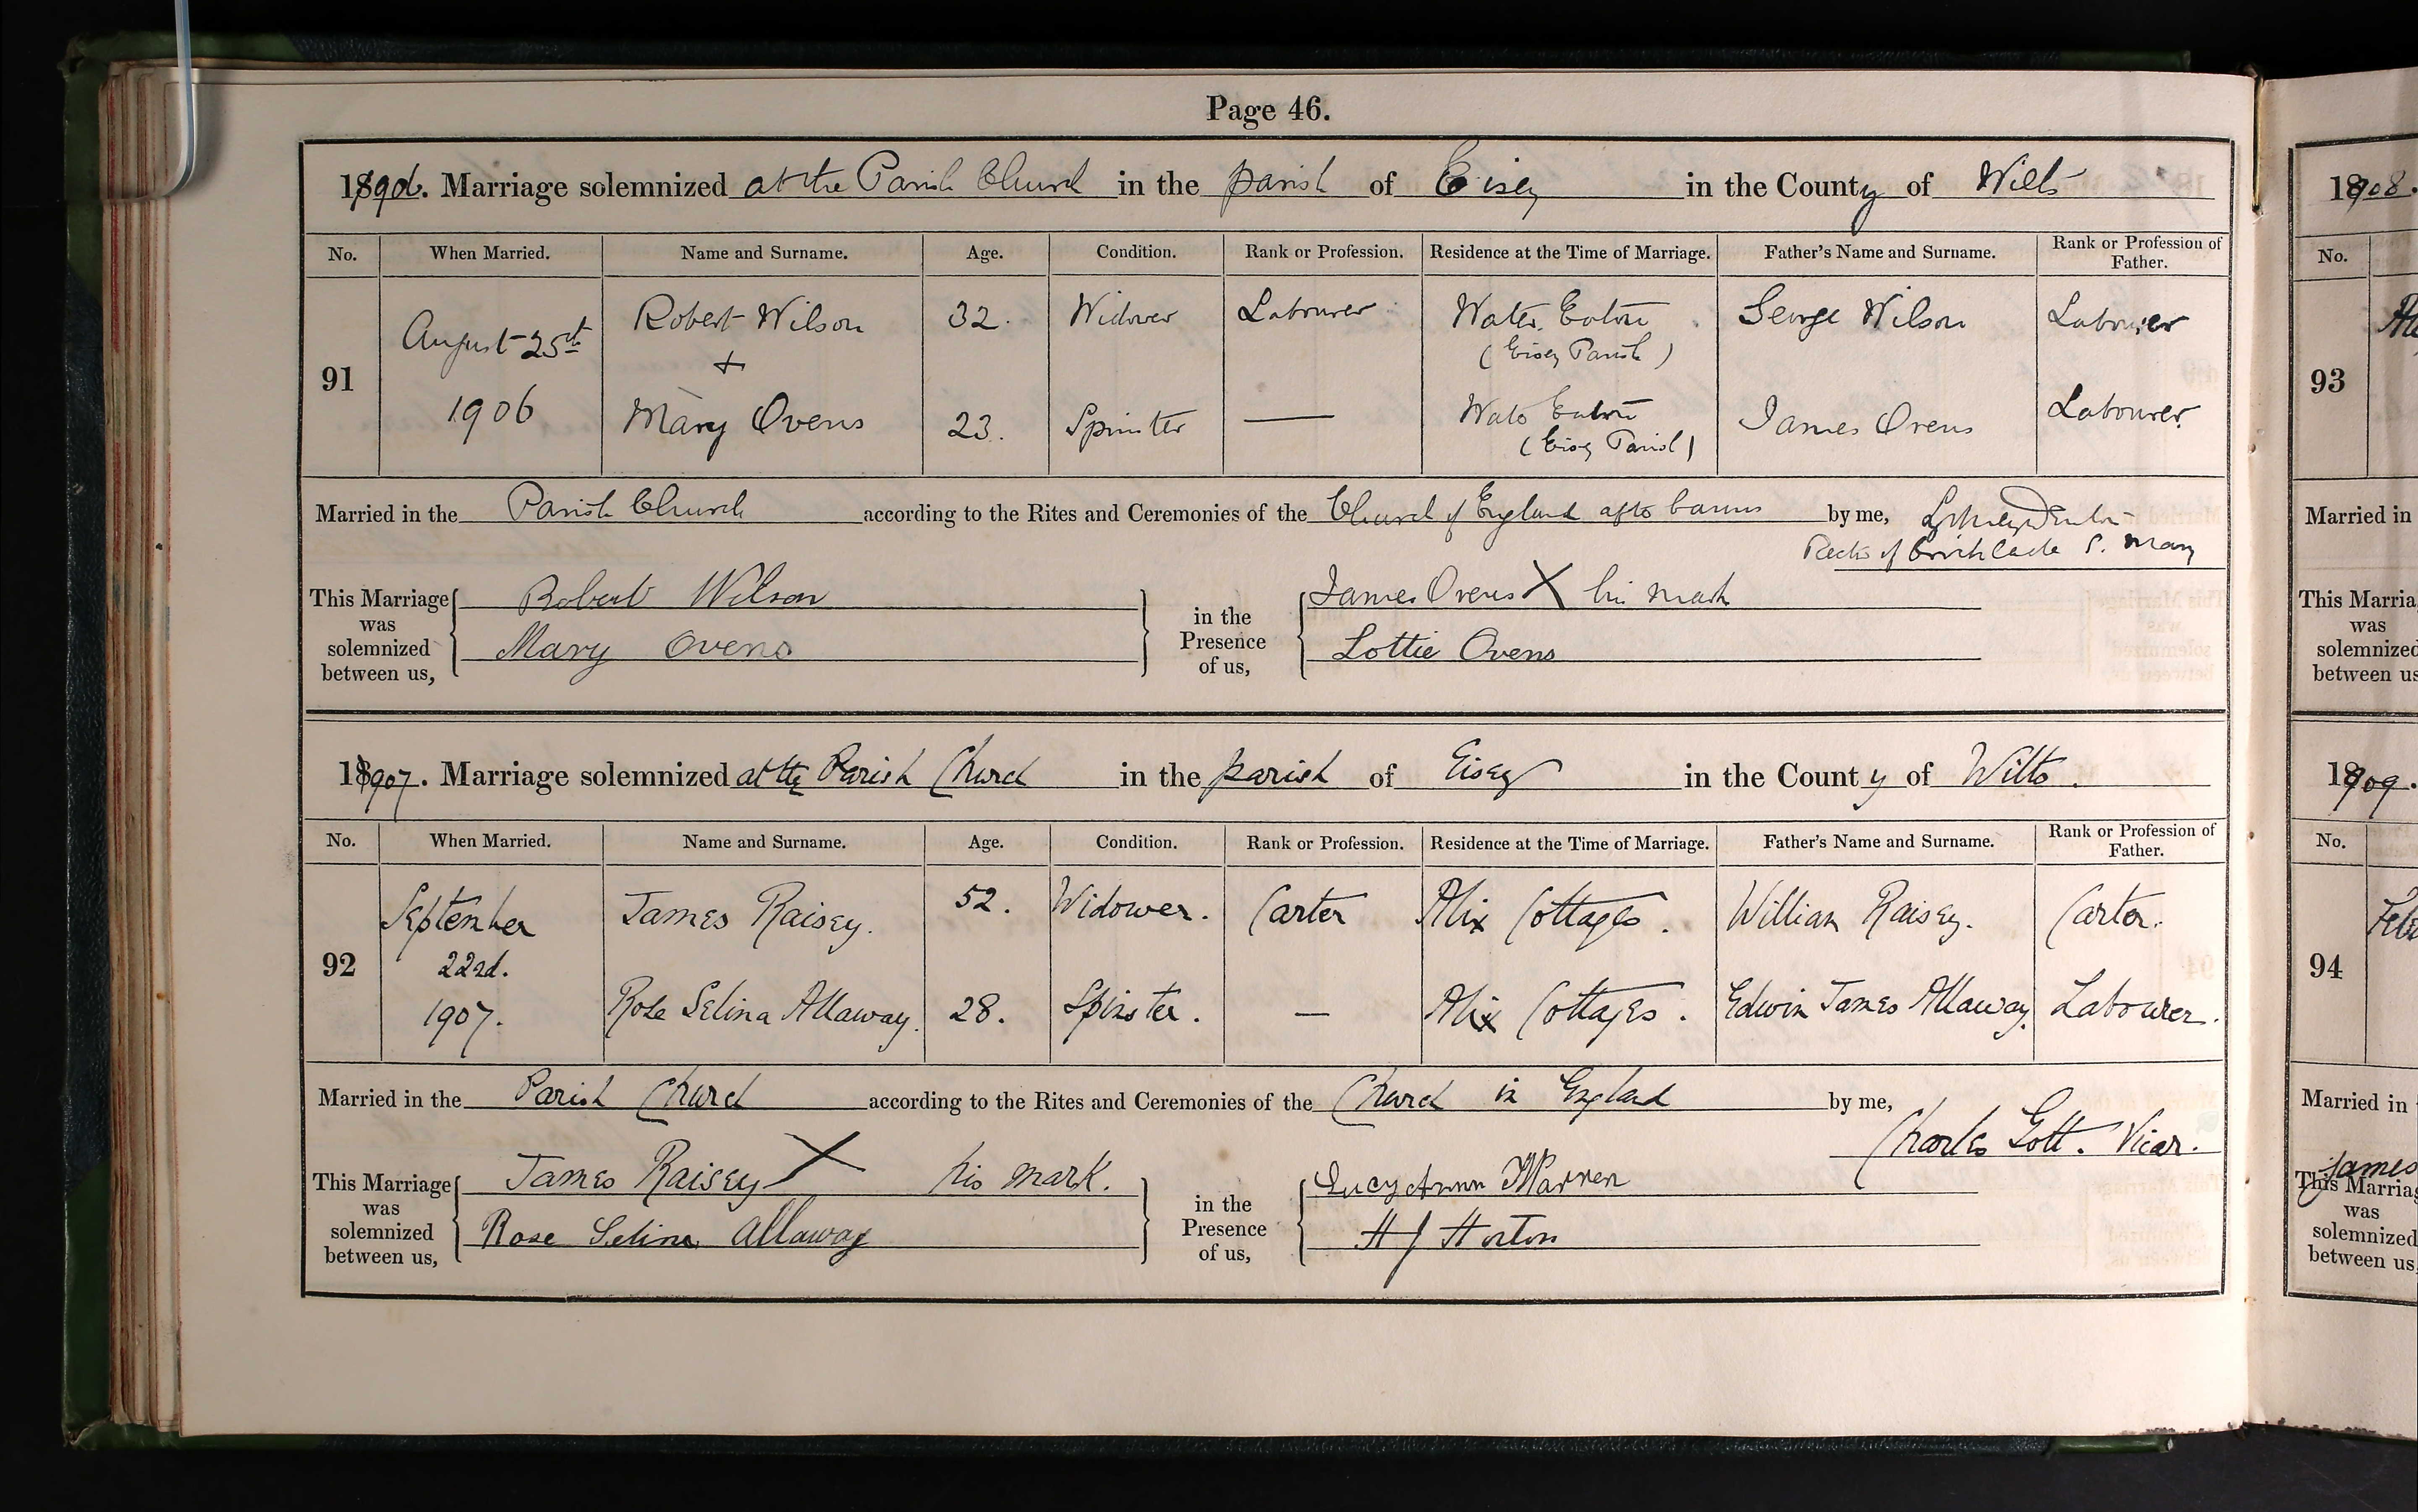 Page 46.
190d. Marriage solemnized at the Parish Church in the parish of Eisey in the County of Wilts
No. When Married. Name and Surname. Age. Condition. Rank or Profession. Residence at the Time of Marriage. Father's Name and Surname. Rank or Profession of Father.
91 August 25th 1906 Robert Wilson 32. Widower Labourer Water Eaton (Eisey Parish) George Wilson Labourer
+
Mary Ovens 23. Spinster — Water Eaton (Eisey Parish) James Ovens Labourer
Married in the Parish Church according to the Rites and Ceremonies of the Church of England after banns by me,
Rector of Cricklade S. Mary
This Marriage was solemnized between us, Robert Wilson in the Presence of us, James Ovens X his mark
Mary Ovens Lottie Ovens
1907. Marriage solemnized at the Parish Church in the parish of Eisey in the County of Wilts.
No. When Married. Name and Surname. Age. Condition. Rank or Profession. Residence at the Time of Marriage. Father's Name and Surname. Rank or Profession of Father.
92 September 22nd. 1907. James Raisey. 52. Widower. Carter Alix Cottages. William Raisey. Carter.
Rose Selina Allaway. 28. Spinster. — Alix Cottages. Edwin James Allaway. Labourer.
Married in the Parish Church according to the Rites and Ceremonies of the Church in England by me,
Charles Gott. Vicar.
This Marriage was solemnized between us, James Raisey X his mark. in the Presence of us, Lucy Ann Warren
Rose Selina Allaway H J Horton
1908.
No.
93
Married in
This Marria
was
solemnized
between us
1909.
No.
94
Married in
James
This Marriag
was
solemnized
between us,